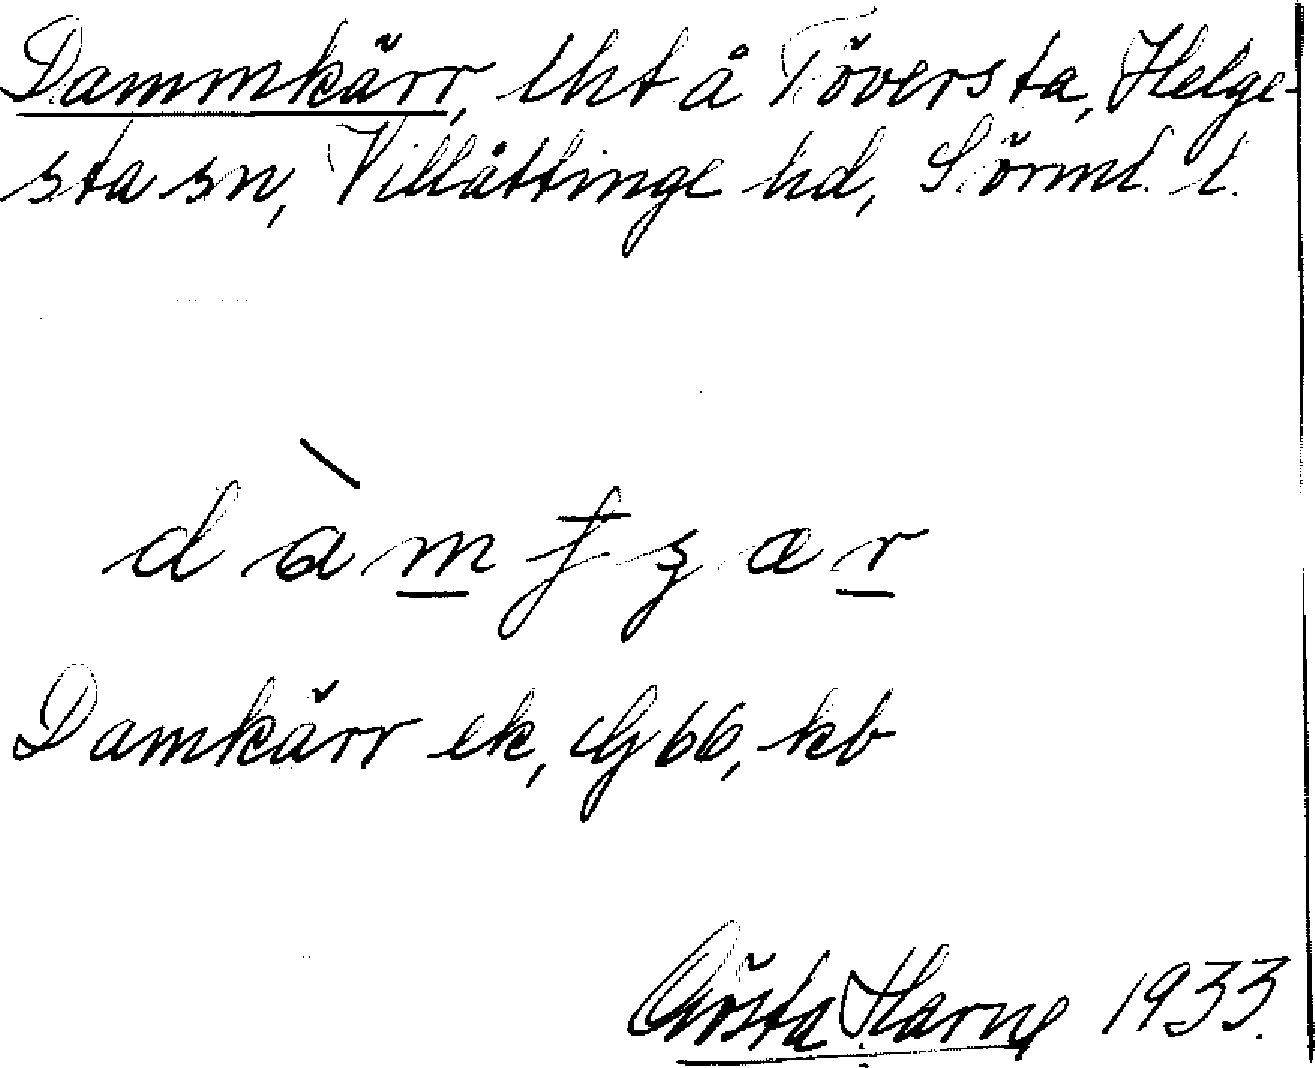 Dammkärr, lht å Töversta, Helge-
sta sn, Villåttinge hd, Sörml. l.
dàmʈʂær
Damkärr ek, G 66, kb
Gösta Harne 1933.